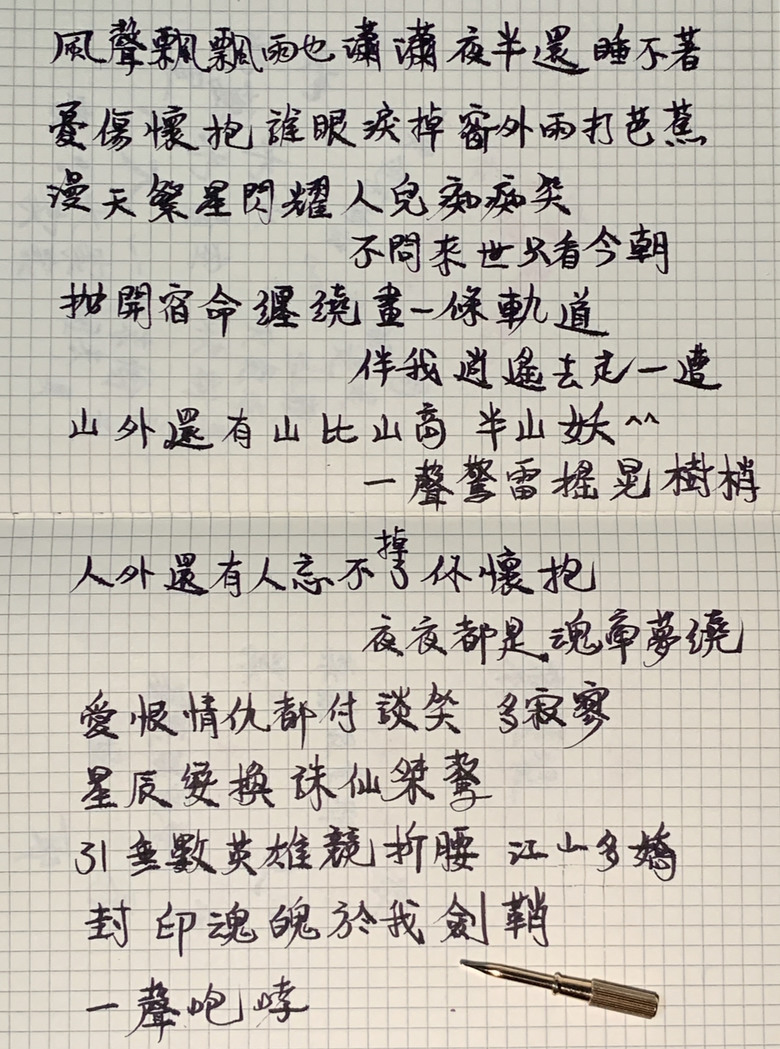 風聲飄飄雨也瀟瀟夜半還睡不著
憂傷懷抱誰眼淚掉窗外雨打芭蕉
漫天繁星閃耀人兒痴痴笑
不問来世只看今朝
拋開宿命纏繞畫一條軌道
伴我逍遙去走一遭
山外還有山比山高 半山妖^^
一聲驚雷搖晃樹梢
人外還有人忘不掉了你懷抱
夜夜都是魂牽夢繞
愛恨情仇都付談笑 多寂寥
星辰變換誅仙桀驁
引無數英雄競折腰 江山多嬌
封印魂魄於我劍鞘
一聲咆哮